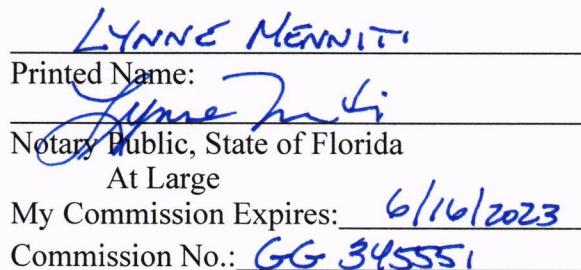 LYNNE MENNITI
Printed Name:
Lynne
Notary Public, State of Florida
At Large
My Commission Expires: 6/16/2023
Commission No.: GG 345551